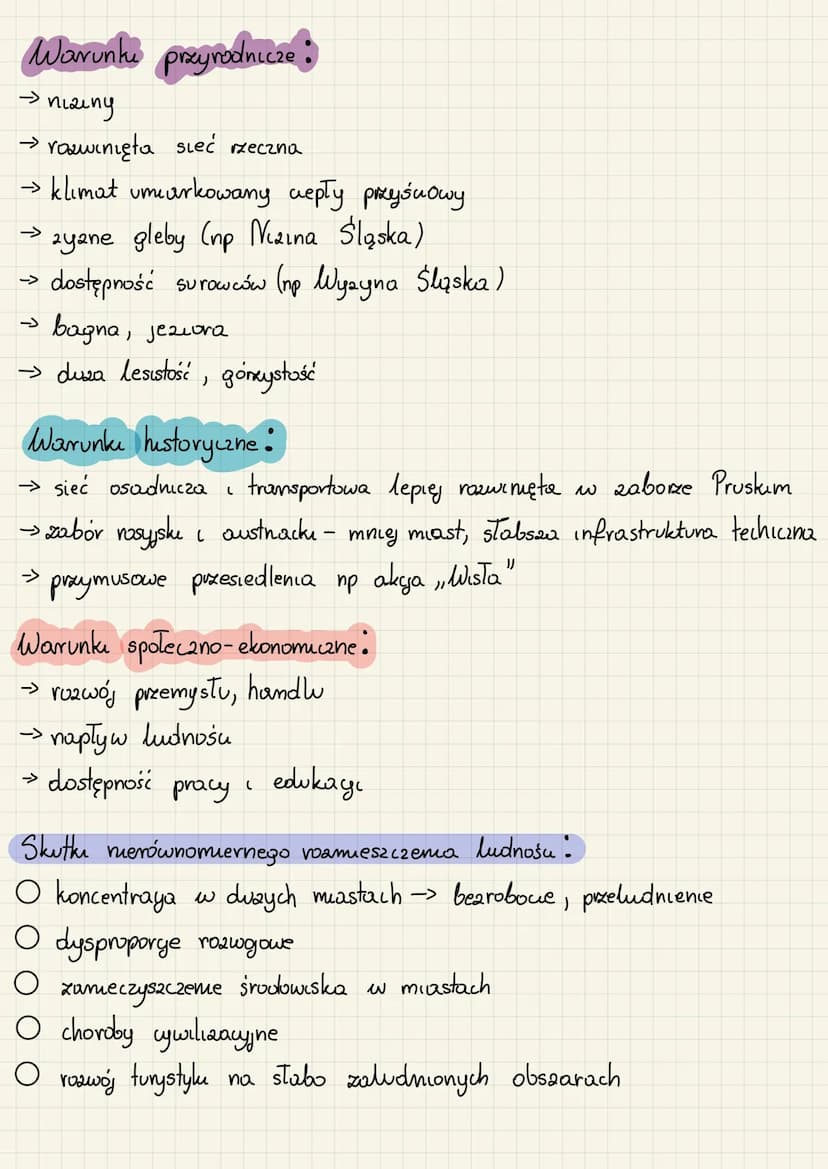 Warunki przyrodnicze:
→ niziny
→ rozwinięta sieć rzeczna
→ klimat umiarkowany ciepły przejściowy
→ żyzne gleby (np Nizina Śląska)
→ dostępność surowców (np Wyżyna Śląska)
→ bagna, jeziora
→ duża lesistość, górzystość
Warunki historyczne:
→ sieć osadnicza i transportowa lepiej rozwinięta w zaborze Pruskim
→ zabór rosyjski i austriacki – mniej miast, słabsza infrastruktura techiczna
→ przymusowe przesiedlenia np akcja „Wisła"
Warunki społeczno-ekonomiczne:
→ rozwój przemysłu, handlu
→ napływ ludności
→ dostępność pracy i edukacji
Skutki nierównomiernego rozmieszczenia ludności:
○ koncentracja w dużych miastach → bezrobocie, przeludnienie
○ dysproporcje rozwojowe
○ zanieczyszczenie środowiska w miastach
○ choroby cywilizacyjne
○ rozwój turystyki na słabo zaludnionych obszarach